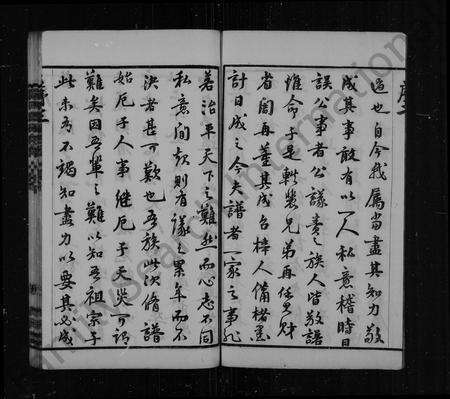 過也自今我屬當盡其知力敬
成其事敢有以一人私意稽時日
誤公事者公議責之族人皆敬諾
惟命于是軼裴兄弟再任其財
省閣再董其成召梓人備楮墨
計日成之今夫譜者一家之事非
若治平天下之難然而心志不同
私意間起則有謀之累年而不
決者甚可歎也吾族此次脩譜
始厄于人事繼厄于天災可謂
難矣因吾輩之難以知吾祖宗于
此未為不竭知盡力以要其必成
序二